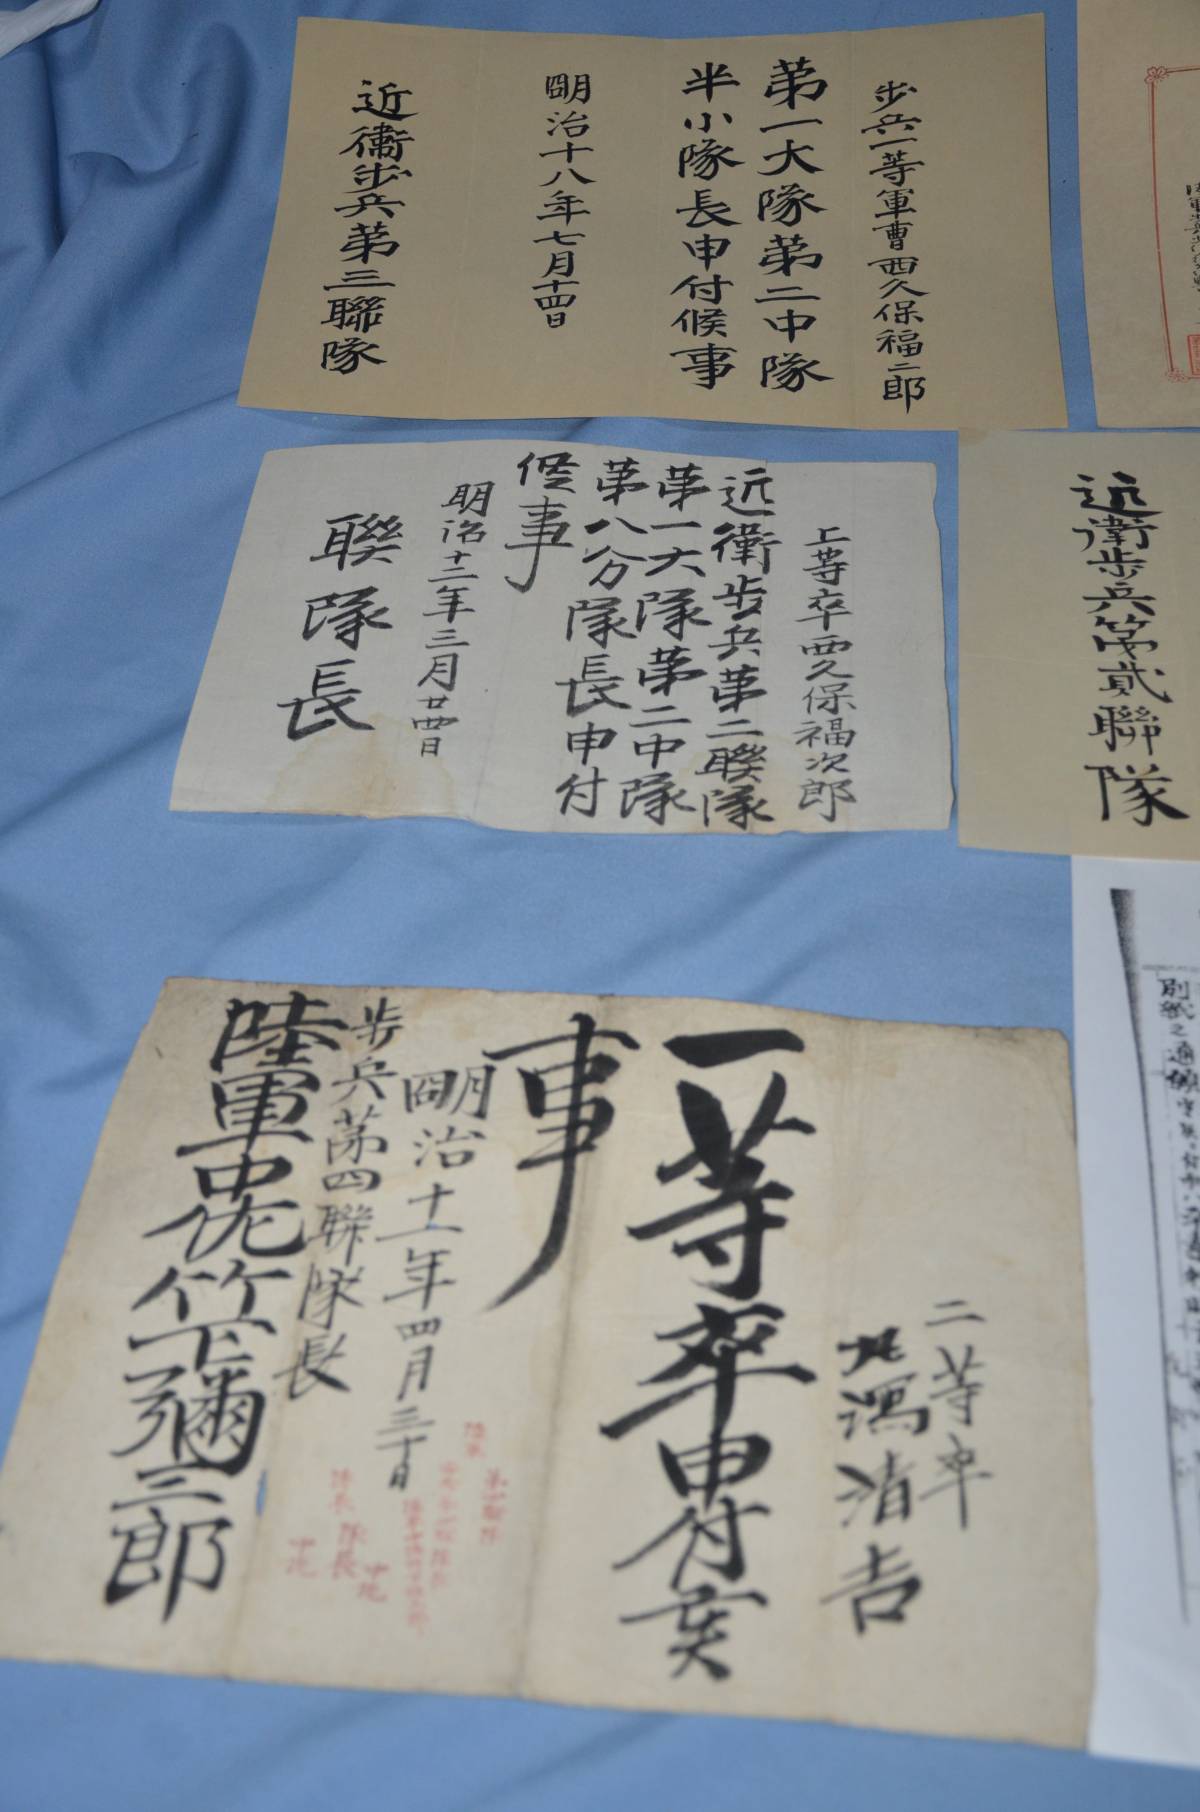 歩兵一等軍曹西久保福二郎
第一大隊第二中隊
半小隊長申付候事
明治十八年七月十四日
近衞歩兵第三聯隊
上等卒西久保福次郎
近衞歩兵第二聯隊
第一大隊第二中隊
第八分隊長申付
候事
明治十二年三月廿四日
聯隊長
近衞歩兵第貳聯隊
二等卒
清吉
一等卒申付候
事
明治十一年四月三十日
歩兵第四聯隊長
陸軍中佐竹下彌三郎
別紙之通